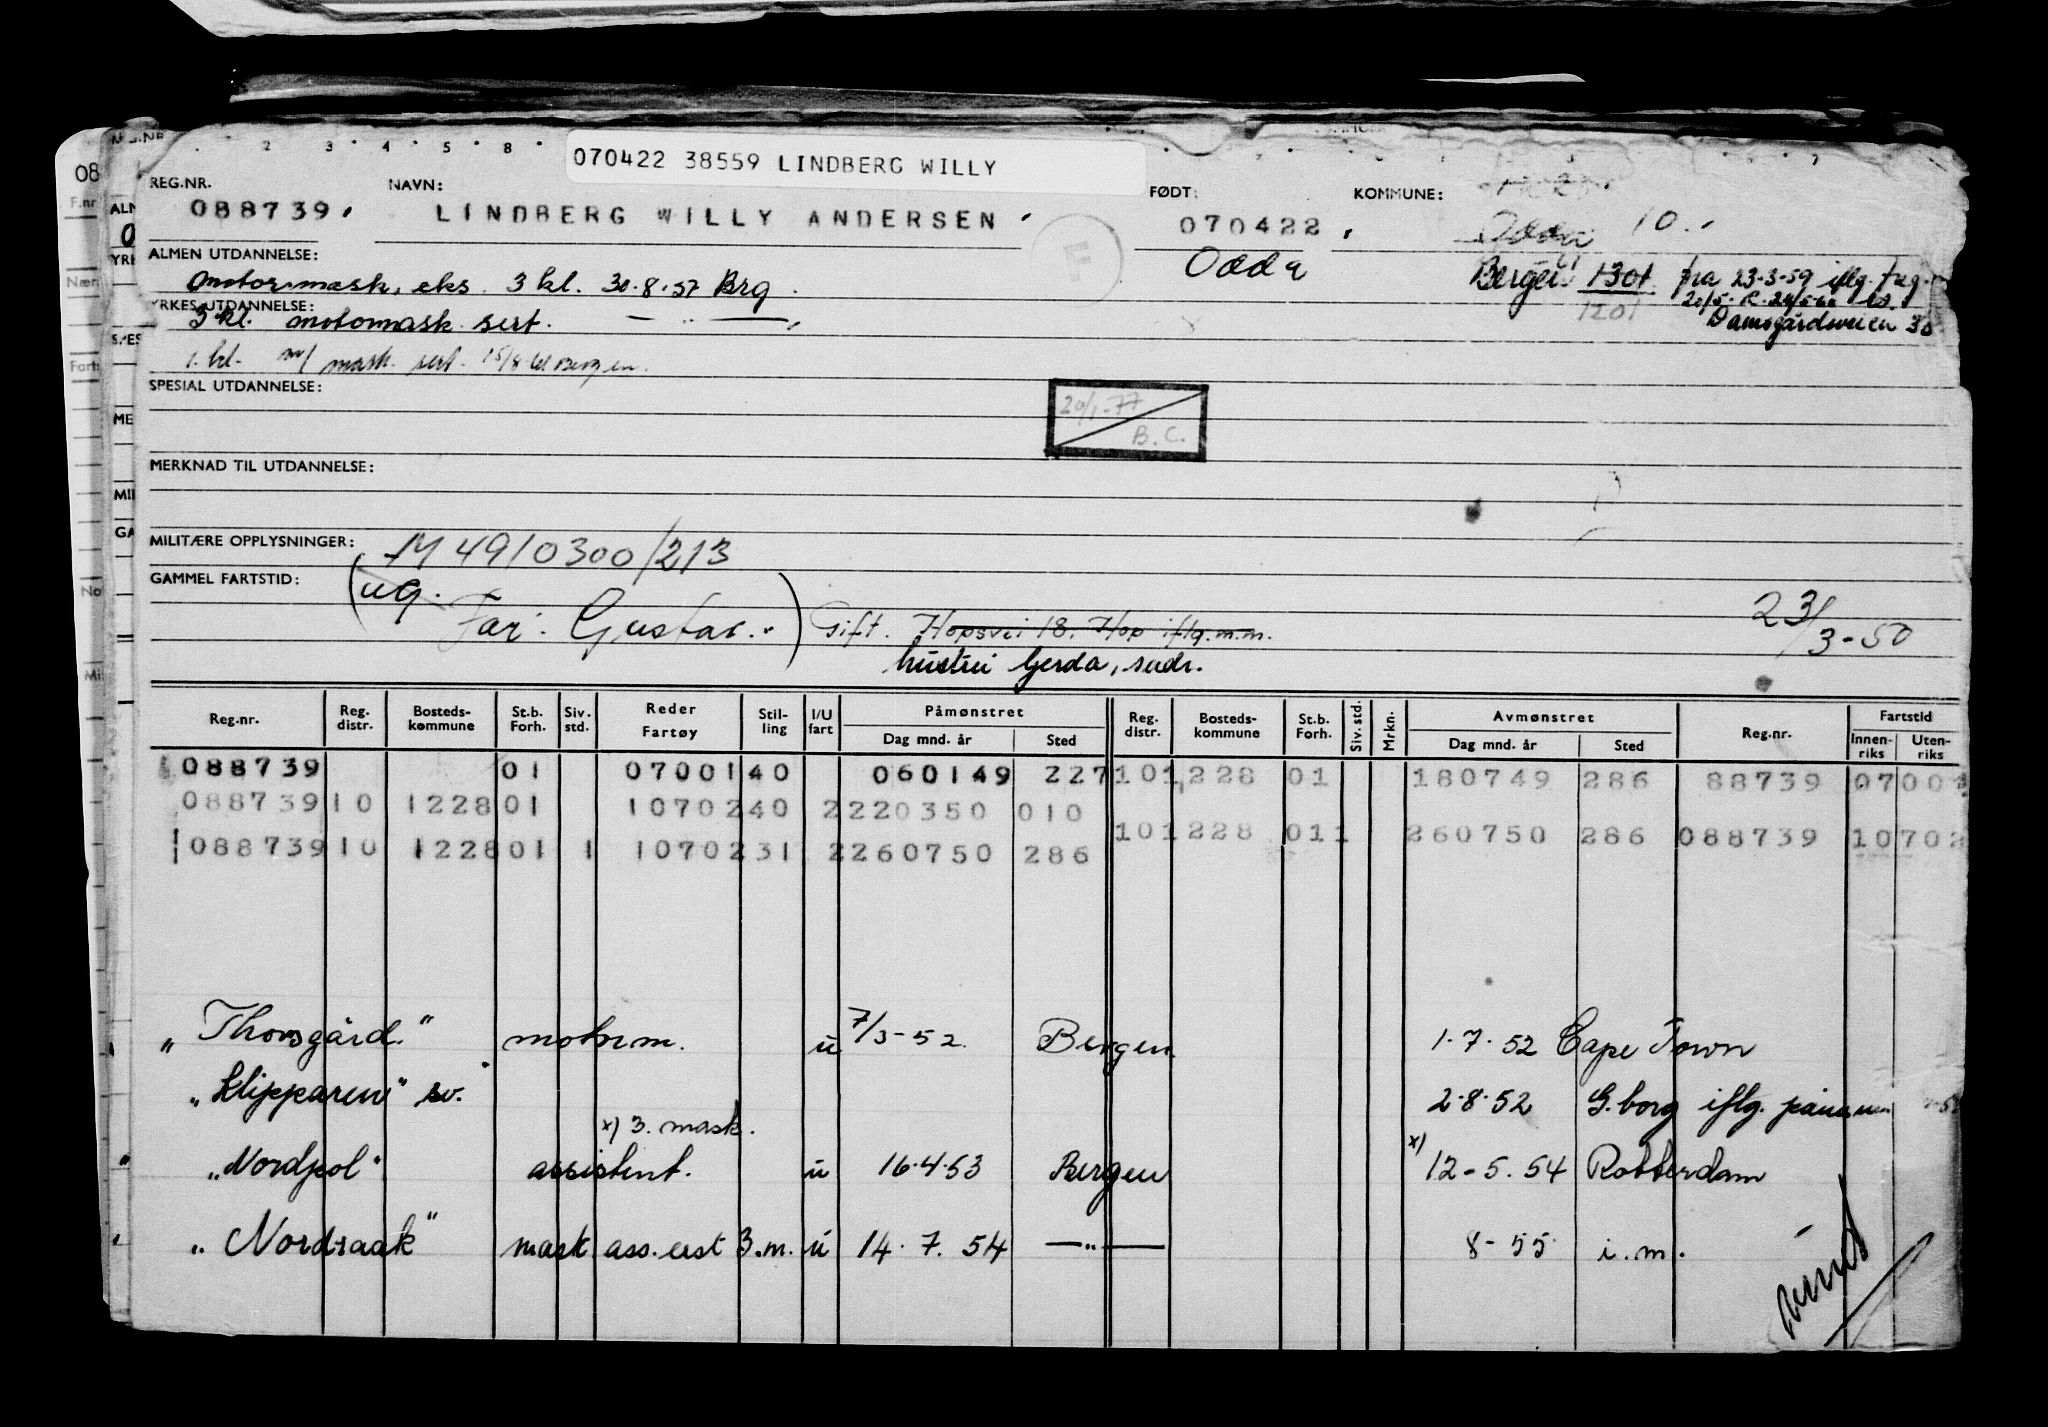 070422 38559 LINDBERG WILLY
REG.NR. NAVN: FØDT: KOMMUNE:
088739. LINDBERG WILLY ANDERSEN. 070422. Odda 10.
ALMEN UTDANNELSE: Odda
motormask. eks. 3 kl. 30.8.57 Brg. Bergen 1301 fra 23-3-59 iflg.
1201
YRKESUTDANNELSE: Damsgårdsveien 30
3 kl. motormask. sert. — " —
1. kl. m/ mask. sert. 15/8 Bergen.
SPESIAL UTDANNELSE:
20/1-77
B.C.
MERKNAD TIL UTDANNELSE:
MILITÆRE OPPLYSNINGER: M 49/0300/213
GAMMEL FARTSTID: (ug.
Far: Gustav.) Gift. Hopsvei 18, Hop iflg. m.m. 23/3-50
hustru Gerda, sadr.
Reg.nr. Reg. distr. Bosteds-kommune St.b. Forh. Siv. std. Reder Fartøy Stil-ling I/U fart Påmønstret Dag mnd. år Sted Reg. distr. Bosteds-kommune St.b. Forh. Siv. std. Mrkn. Avmønstret Dag mnd. år Sted Reg.nr. Fartstid Innen-riks Uten-riks
088739 01 07001 40 060149 227 10 1228 01 180749 286 88739 07 00
088739 10 1228 01 10702 40 2 220350 010
10 1228 01 1 260750 286 088739 10 702
088739 10 1228 01 1 10702 31 2 260750 286
"Thorsgård." motorm. u 7/3-52 Bergen 1.7.52 Cape Town
"Klipparen" sv. 2.8.52 G.borg iflg.
x) 3. mask.
"Nordpol" assistent. u 16.4.53 Bergen x) 12-5.54 Rotterdam
"Nordraak" mask ass. erst 3.m. u 14.7.54 — " — 8-55 i.m.